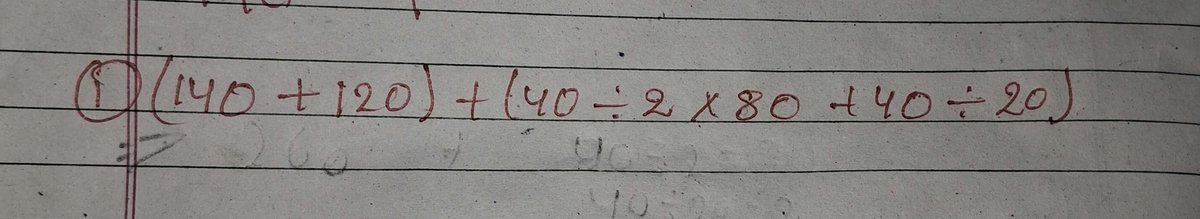 ① (140 + 120) + (40 ÷ 2 × 80 + 40 ÷ 20)
⇒ 260 +